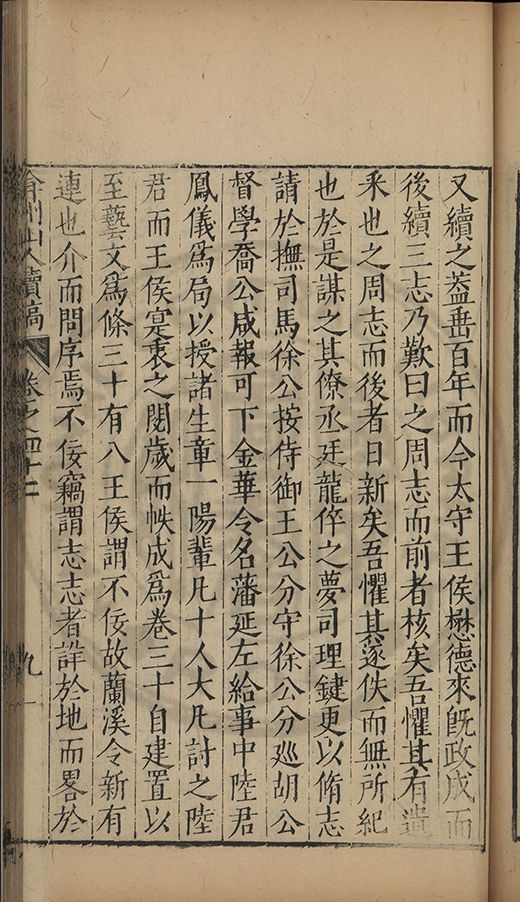 又續之葢垂百年而今太守王侯懋德來旣政成而
後續三志乃歎曰之周志而前者核矣吾懼其有遺
釆也之周志而後者日新矣吾懼其遂佚而無所紀
也於是謀之其僚丞廷龍倅之夢司理鍵更以脩志
請於撫司馬徐公按侍御王公分守徐公分廵胡公
督學喬公咸報可下金華令名藩延左給事中陸君
鳳儀爲局以授諸生童一陽輩凡十人大凡討之陸
君而王侯寔衷之閱歲而帙成爲卷三十自建置以
至藝文爲條三十有八王侯謂不佞故蘭溪令新有
連也介而問序焉不佞竊謂志志者詳於地而畧於
弇州山人續稿 卷之四十二 九